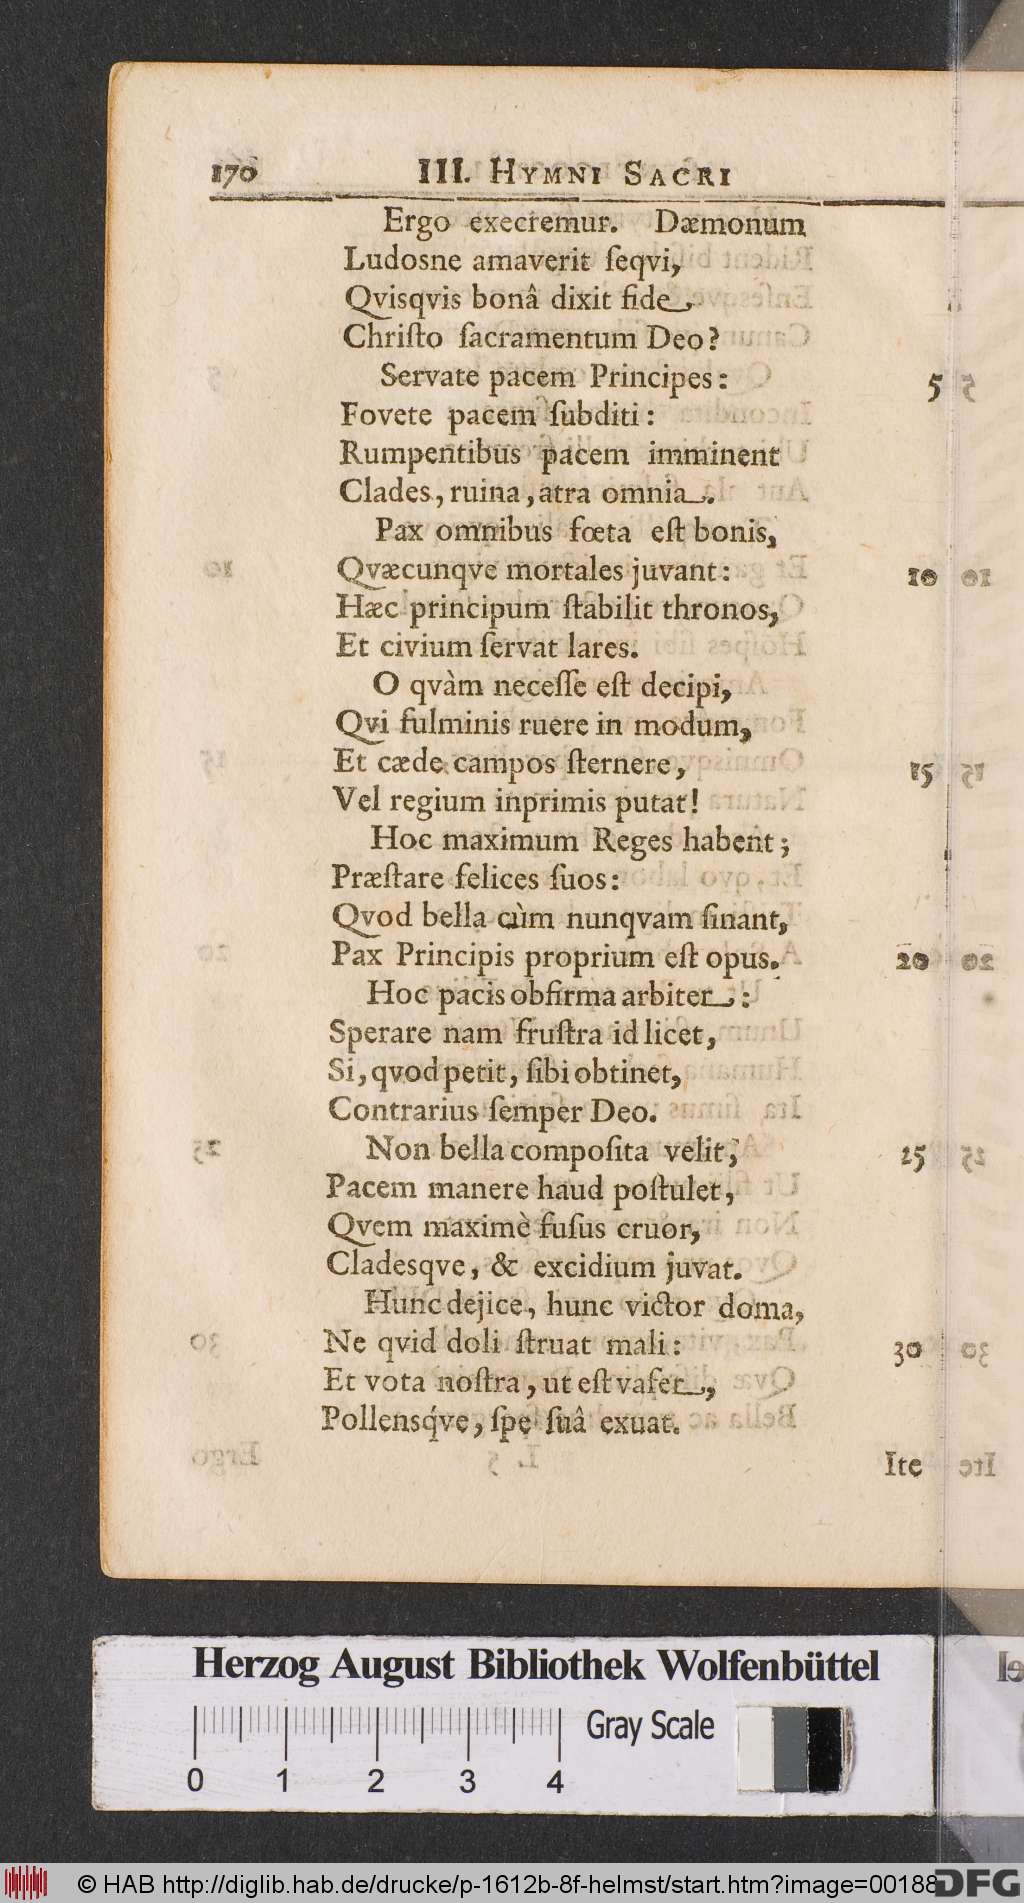 170 III. HYMNI SACRI
Ergo execremur. Dæmonum
Ludosne amaverit ſeqvi,
Qvisqvis bonâ dixit fide,
Chriſto ſacramentum Deo?
Servate pacem Principes: 5
Fovete pacem ſubditi:
Rumpentibus pacem imminent
Clades, ruina, atra omnia.
Pax omnibus fœta eſt bonis,
Qvæcunqve mortales juvant: 10
Hæc principum ſtabilit thronos,
Et civium ſervat lares.
O qvàm neceſſe eſt decipi,
Qvi fulminis ruere in modum,
Et cæde campos ſternere, 15
Vel regium inprimis putat!
Hoc maximum Reges habent;
Præſtare felices ſuos:
Qvod bella cùm nunqvam ſinant,
Pax Principis proprium eſt opus. 20
Hoc pacis obfirma arbiter:
Sperare nam fruſtra id licet,
Si, qvod petit, ſibi obtinet,
Contrarius ſemper Deo.
Non bella compoſita velit, 25
Pacem manere haud poſtulet,
Qvem maximè fuſus cruor,
Cladesqve, & excidium juvat.
Hunc dejice, hunc victor doma,
Ne qvid doli ſtruat mali: 30
Et vota noſtra, ut eſt vafer,
Pollensq́ve, ſpe ſuâ exuat.
Ite
Herzog August Bibliothek Wolfenbüttel
Gray Scale
0 1 2 3 4
© HAB http://diglib.hab.de/drucke/p-1612b-8f-helmst/start.htm?image=00188
DFG